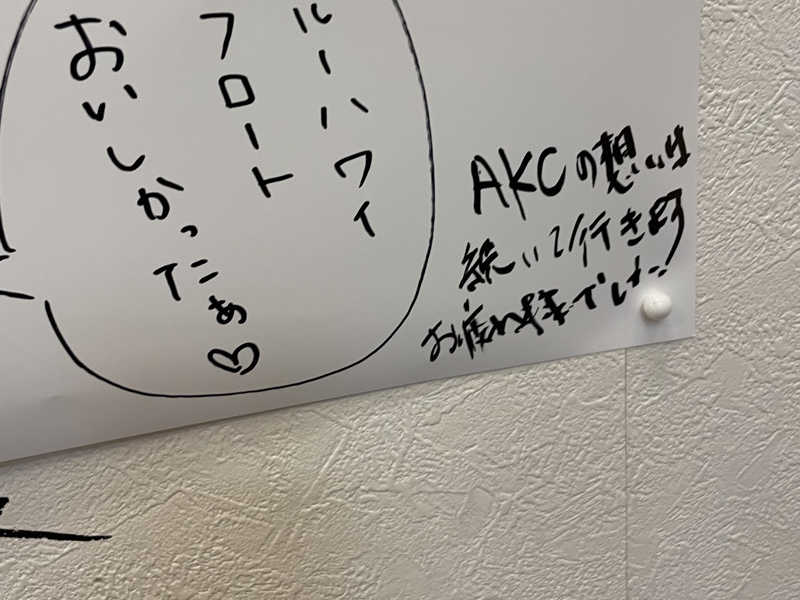 ルーハワイ
フロート
おいしかったぁ♡
AKCの想いは
続いて行きます
お疲れ様でした!